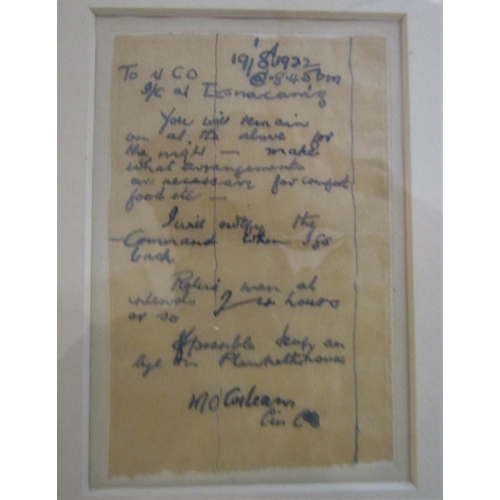 19/8/1922
To NCO @ 8.45 pm
I/C at
You will remain
on at the above for
the night — make
what arrangements
are necessary for comfort
food etc —
I will notify the
Command when I go
back
Relieve men at
intervals of 4 hours
or so
If possible keep an
eye on Plunkett house
M O
C in C